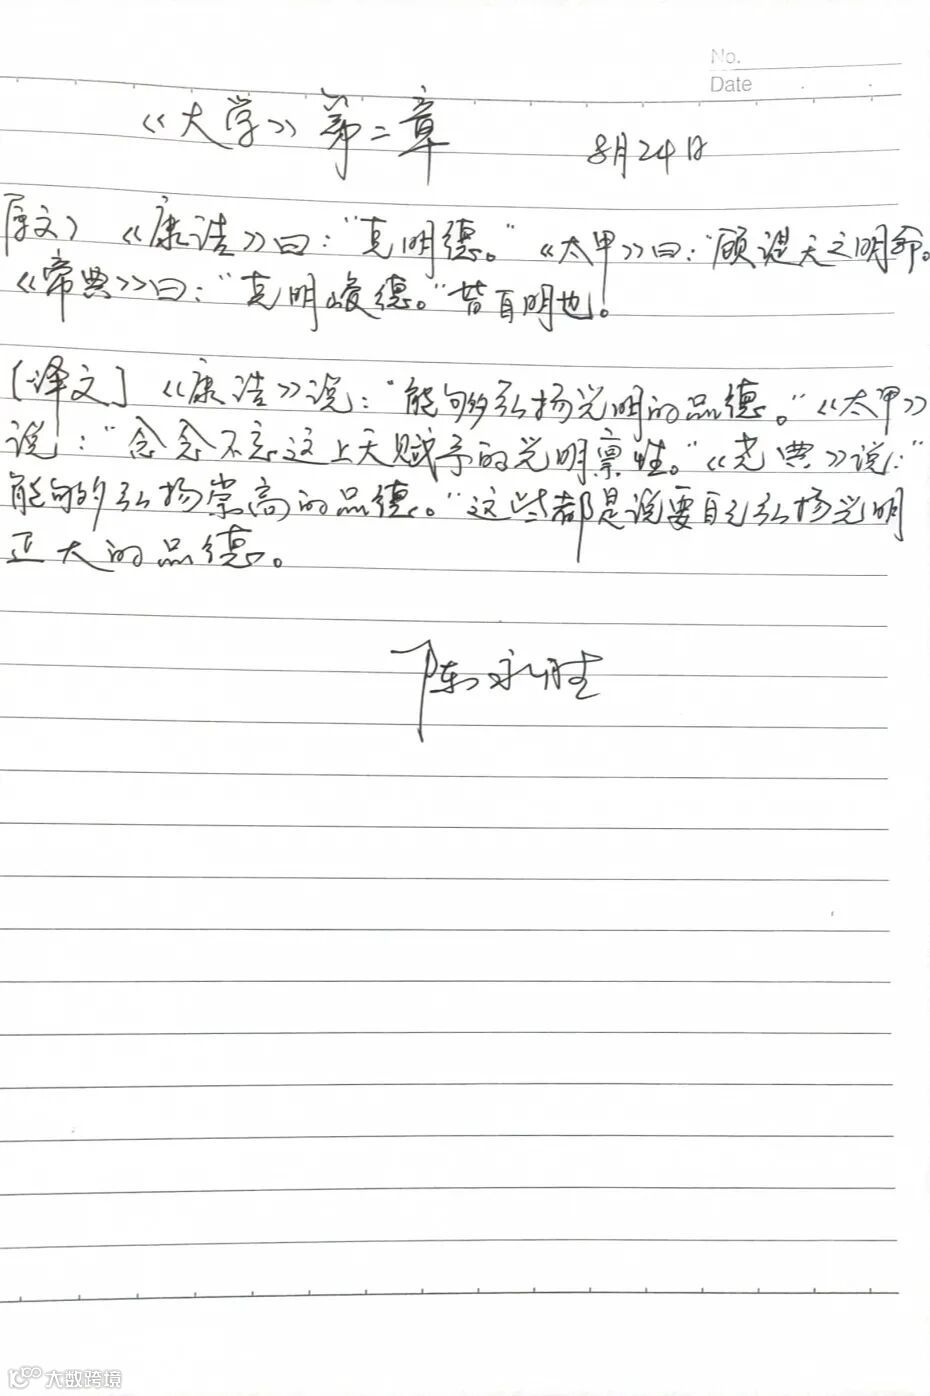 No.
Date
《大学》第二章
8月24日
原文〉《康诰》曰:"克明德。"《太甲》曰:"顾諟天之明命。
《帝典》曰:"克明峻德。"皆自明也。
[译文]《康诰》说:"能够弘扬光明的品德。"《太甲》
说:"念念不忘这上天赋予的光明禀性。"《尧典》说:"
能够弘扬崇高的品德。"这些都是说要自己弘扬光明
正大的品德。
陈永胜
大数跨境